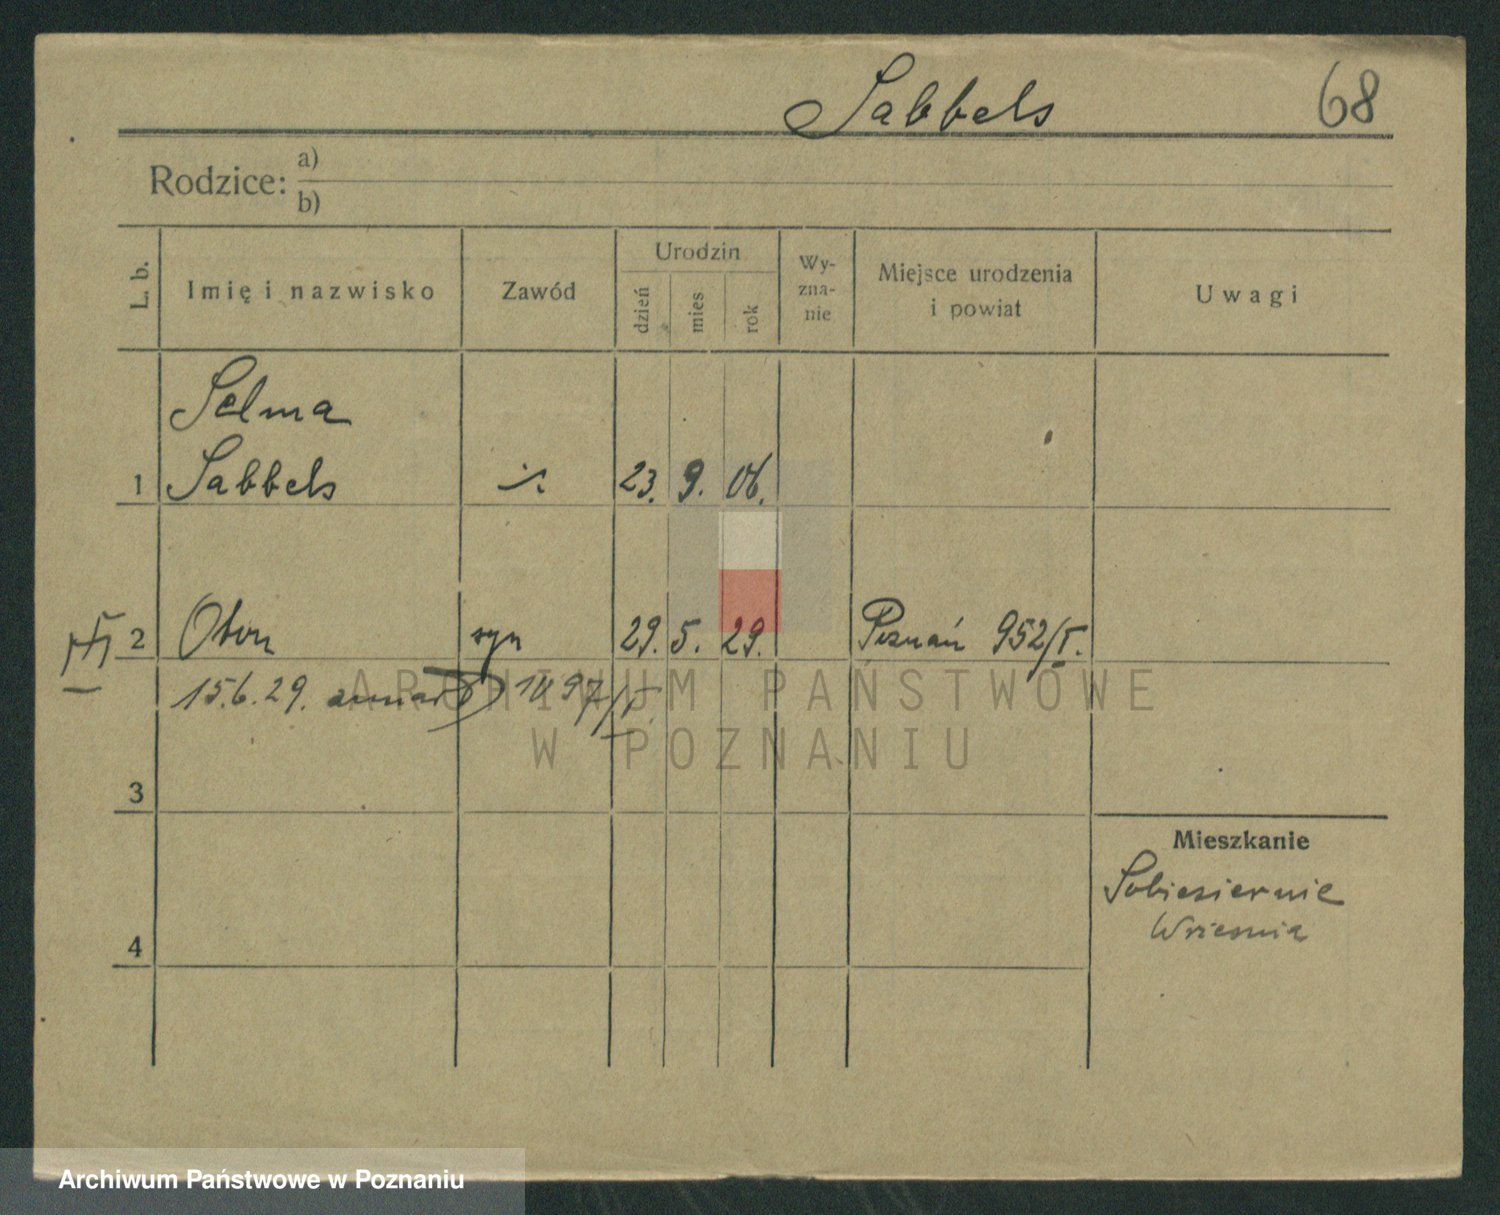 Sabbels 68
Rodzice: a)
b)
L. b. Imię i nazwisko Zawód Urodzin dzień mies rok Wy-zna-nie Miejsce urodzenia i powiat Uwagi
Selma
1 Sabbels 23. 9. 06.
2 Oton syn 29. 5. 29. Poznań 952/I.
15.6.29. zmarł 1097/I.
ARCHIWUM PAŃSTWOWE
W POZNANIU
3
Mieszkanie
Sobiesiernie
Wrzesnia
4
Archiwum Państwowe w Poznaniu